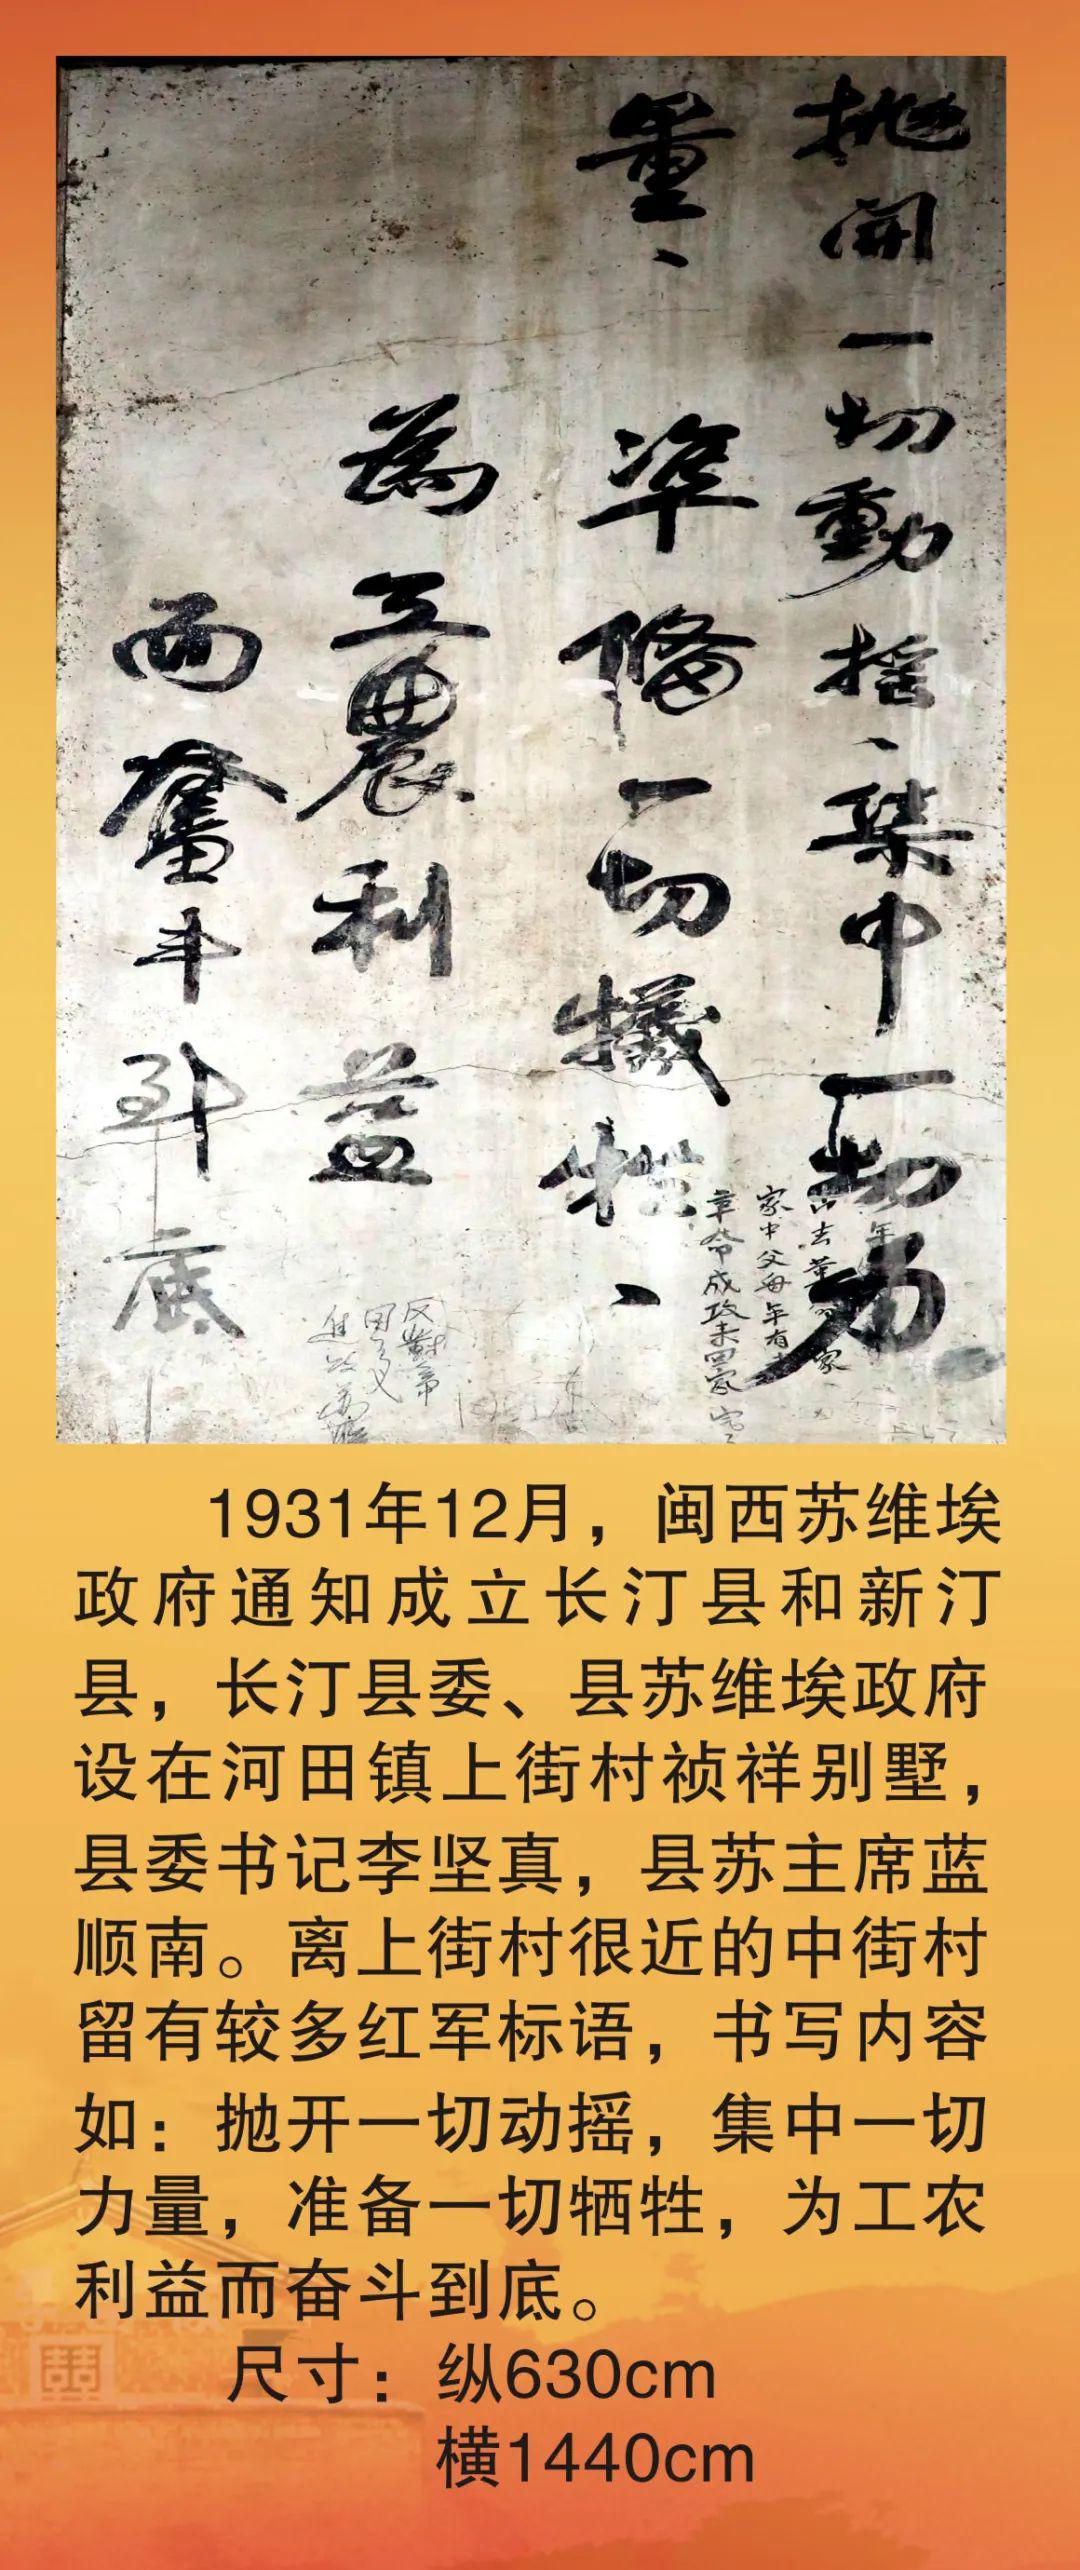 抛開一切動揺、集中一切力
量、準俻一切犠牲、
為工農利益
而奮斗到底
家中父母年有
革命成功未回家
反對帝
国主义
進攻苏联
1931年12月，闽西苏维埃
政府通知成立长汀县和新汀
县，长汀县委、县苏维埃政府
设在河田镇上街村祯祥别墅，
县委书记李坚真，县苏主席蓝
顺南。离上街村很近的中街村
留有较多红军标语，书写内容
如：抛开一切动摇，集中一切
力量，准备一切牺牲，为工农
利益而奋斗到底。
尺寸：纵630cm
横1440cm